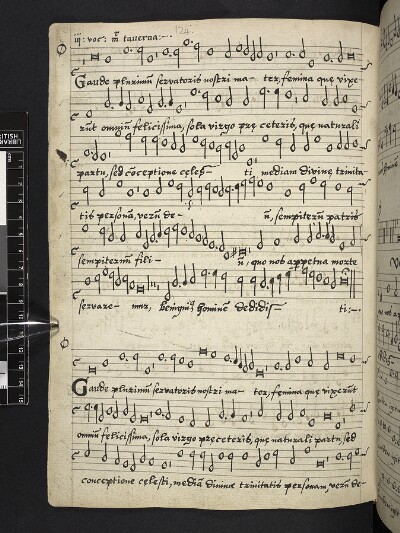 124.
iij: voc: mr taverna:-
Gaude plurimũ servatoris nostri ma- ter, femina que vixe-
rũt omniũ felicissima, sola virgo pre ceteris, que naturali
partu, sed cõceptione celes- ti mediam divine trinita-
tis personã, verũ de- ũ, sempiternũ patris
sempiternũ fili- ũ, quo nob a perpetua morte
servare- mur, benignus hominẽ dedidis- ti:-
Gaude plurimũ servatoris nostri ma- ter, femina que vixerũt
omniũ felicissima, sola virgo pre ceteris, que naturali partu, sed
conceptione celesti, mediã divine trinitatis personam, verũ de-
BRITISH